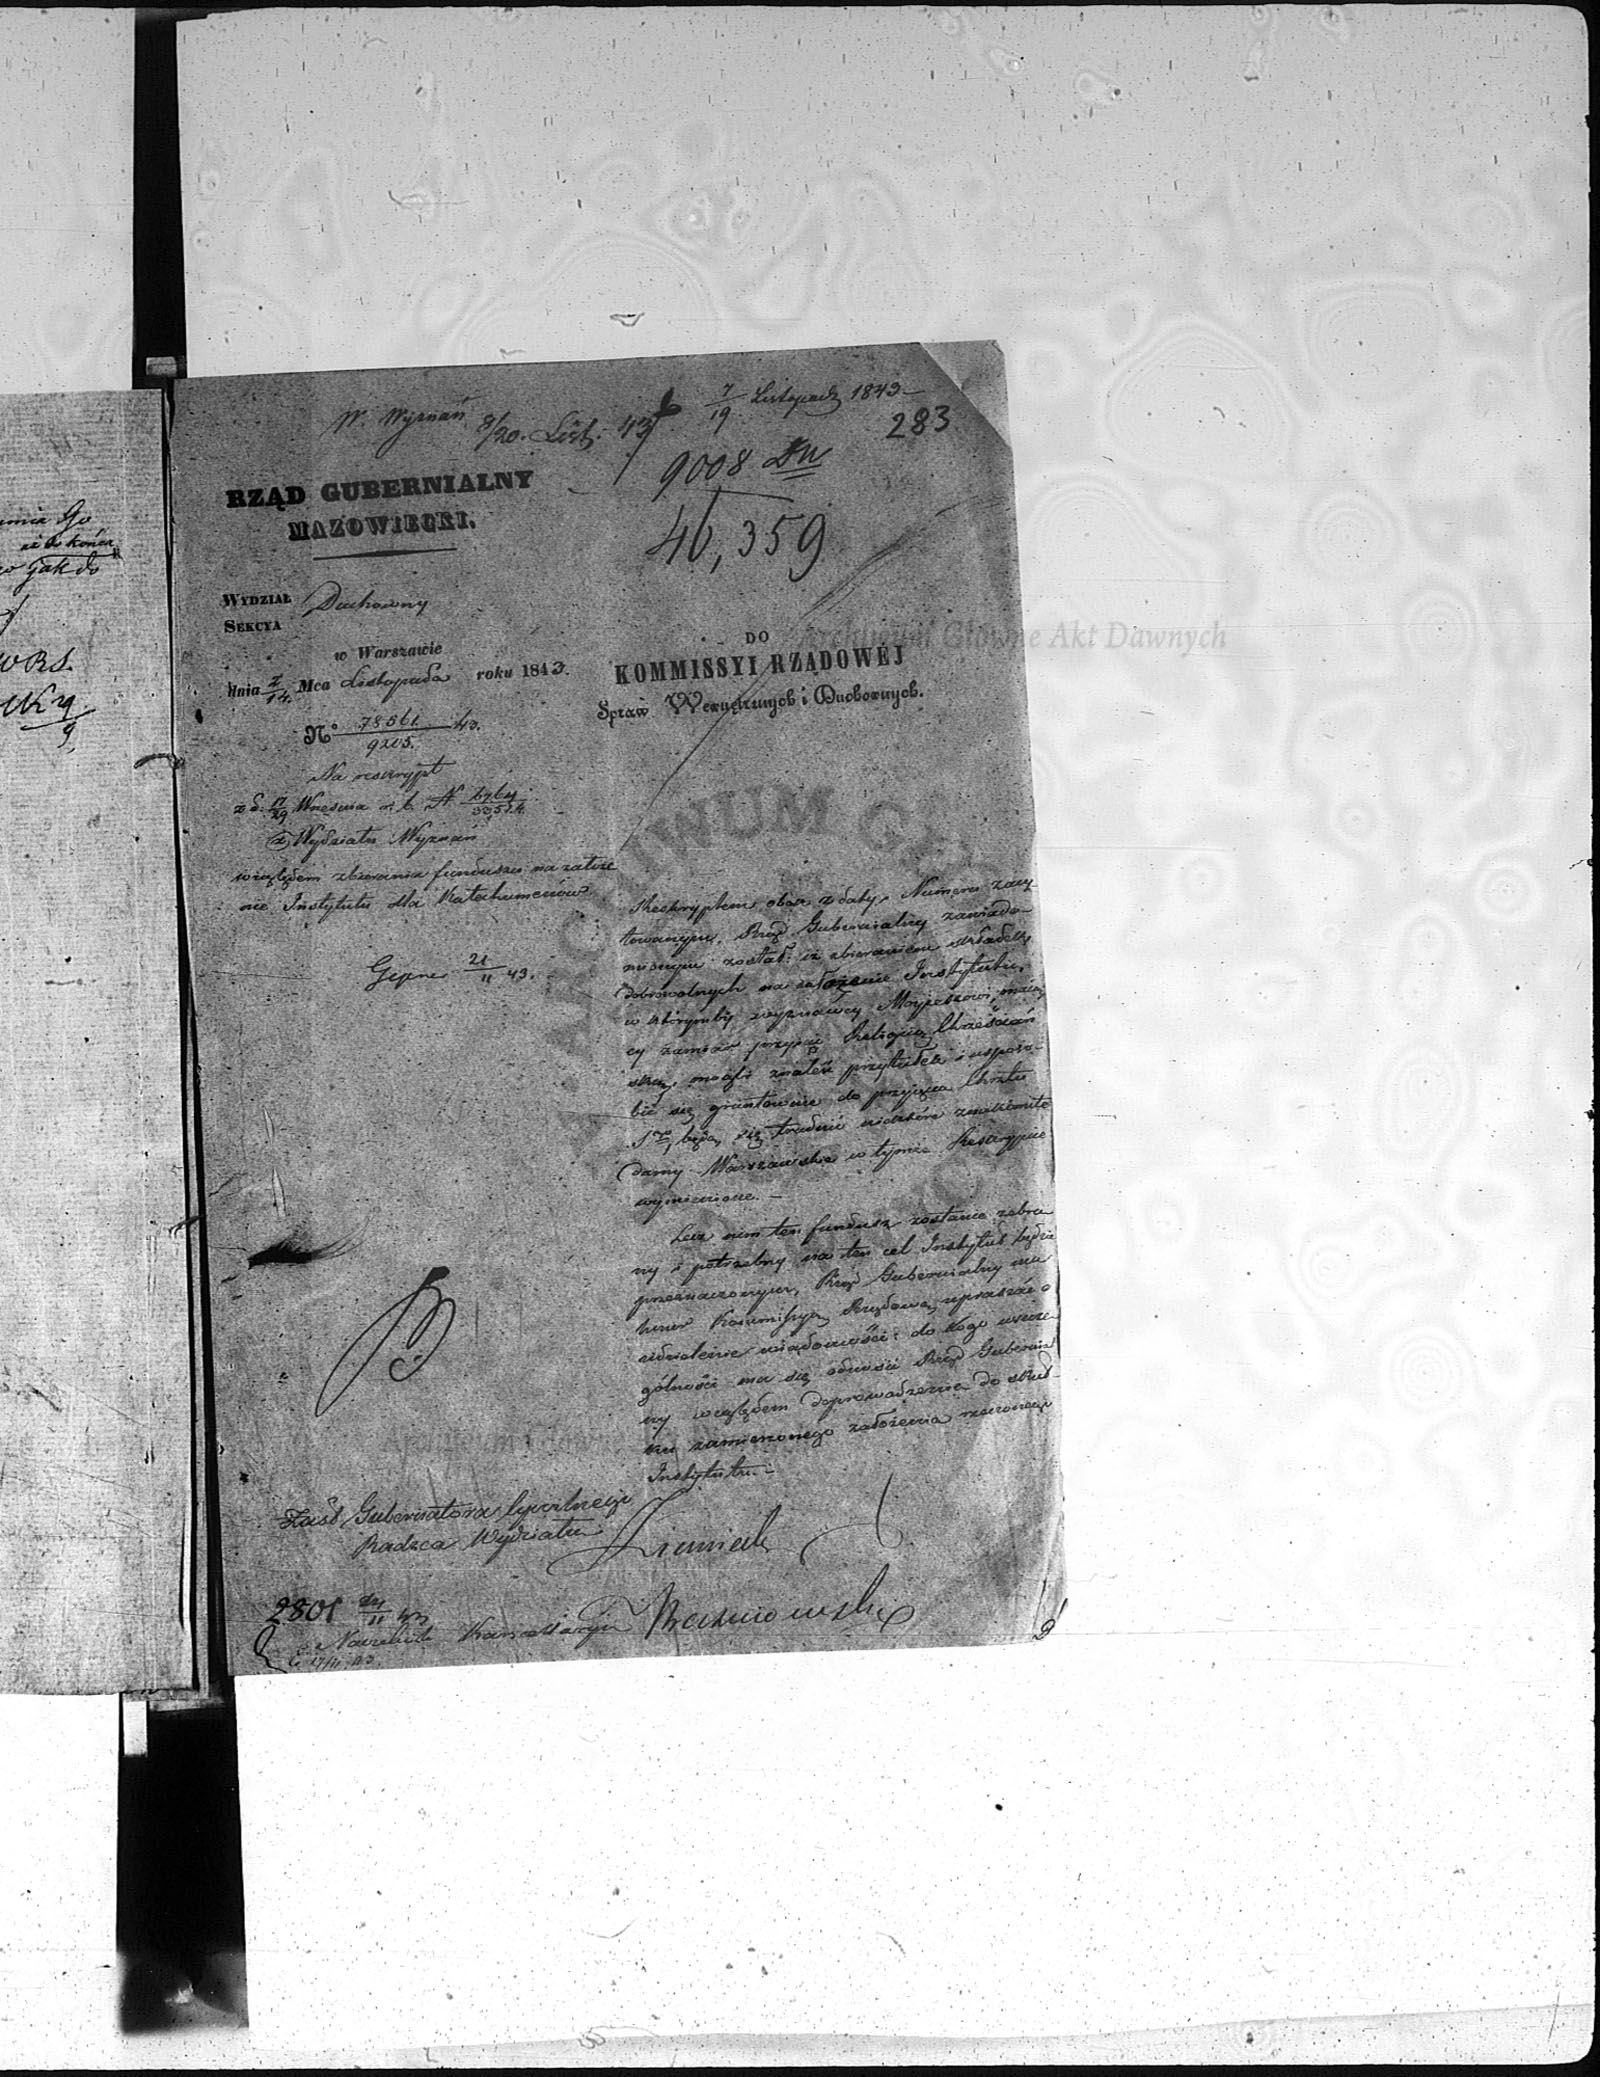 nia Go
aż do końca
jak do
W. Wyznań 8/20. List. 43
7/19 Listopada 1843
283
9008
46,359
RZĄD GUBERNIALNY
MAZOWIECKI.
WYDZIAŁ Duchowny
SEKCYA
w Warszawie
dnia 2/14. Mca Listopada roku 1843.
No 78561/9205. 43.
Na reskrypt
z d. 17/29 Września r. b. N
Wydziału Wyznań
względem zbierania funduszu na założe
nie Instytutu dla Katechumenów
Gepner 21/11 43.
DO
KOMMISSYI RZĄDOWÉJ
Spraw Wewnętrznych i Duchownych.
Reskryptem obok z daty i Numeru zacy
towanym, Rząd Gubernialny zawiado-
mionym został: iż zbieraniem składek
dobrowolnych na założenie Instytutu,
w którymby wyznawcy Mojżeszowi, mają
cy zamiar przyjąć Religią Chrześciań
ską, mogli znaleść przytułek i usposo-
bić się gruntownie do przyjęcia Chrztu
Sgo, będą się trudnić niektóre znakomite
damy Warszawskie w tymże Reskrypcie
wymienione. —
Lecz nim ten fundusz zostanie zebra
ny i potrzebny na ten cel Instytut będzie
przeznaczonym, Rząd Gubernialny ma
honor Kommissyą Rządową upraszać o
udzielenie wiadomości: do kogo w szcze
gólności ma się odnosić Rząd Gubernial
ny względem doprowadzenia do skut-
ku zamierzonego założenia rzeczonego
Instytutu. —
Zast. Gubernatora Cywilnego
Radzca Wydziału
2801
Naczelnik Kancellaryi
17/11 43.
Archiwum Główne Akt Dawnych